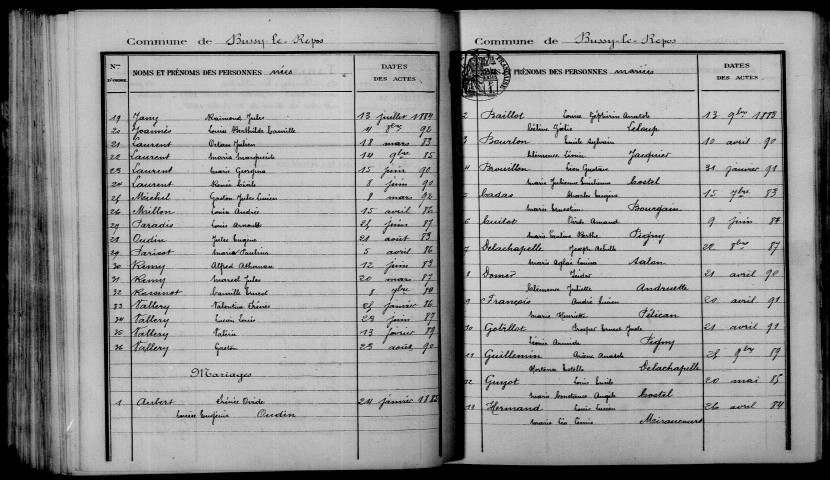 Commune de Bussy-le-Repos
Nos D'ORDRE NOMS ET PRÉNOMS DES PERSONNES nées DATES DES ACTES
19 Jany Raimond Jules 13 juillet 1884
20 Joannès Louise Berthilde Camille 4 8bre 92
21 Laurent Octave Julien 18 mars 83
22 Laurent Marie Marguerite 14 9bre 85
23 Laurent Marie Georgina 15 juin 90
24 Laurent Renée Cécile 8 juin 90
25 Michel Gaston Jules Lucien 8 mars 92
26 Millon Louis André 15 avril 86
27 Paradis Louis 25 juin 87
28 Oudin Jules Eugène 21 août 83
29 Paricot Maria Paulina 5 avril 86
30 Remy Alfred 12 juin 83
31 Remy Marcel Jules 20 mars 87
32 Camille Ernest 8 7bre
33 Vallery Valentine 25 janvier 86
34 Vallery Lucien Louis 23 juin 87
35 Vallery Valérie 13 février 89
36 Vallery Gaston 23 août 90
Mariages
1 Aubert Ovide 24 janvier 1883
Louise Eugénie Oudin
Commune de Bussy-le-Repos
PRÉNOMS DES PERSONNES mariées DATES DES ACTES
2 Baillot Louis Zéphirin Anatole 13 9bre 1883
Leloup
3 Bourlon Emile Sylvain 10 avril 90
Clémence Léonie Jacquier
4 Brouillon Léon Gustave 31 janvier 91
Marie Julienne Costel
5 Cadas Charles Eugène 15 7bre 83
Marie Ernestine Bourgain
6 Armand 9 juin 87
Marie Pauline Berthe Pigny
7 Delachapelle Joseph Achille 22 8bre 87
Marie Aglaé Louise Salan
8 Isidor 21 avril 90
Clémence Juliette Andruette
9 François André Lucien 20 avril 91
Marie Henriette Pélican
10 Gobillot Prosper Ernest Jude 21 avril 91
Pigny
11 Guillemin Anatole 25 9bre 89
Hortense Estelle Delachapelle
12 Guyot Louis Emile 20 mai 85
Marie Constance Angèle Costel
13 Hermand Louis Lucien 26 avril 84
Marie Mirancourt